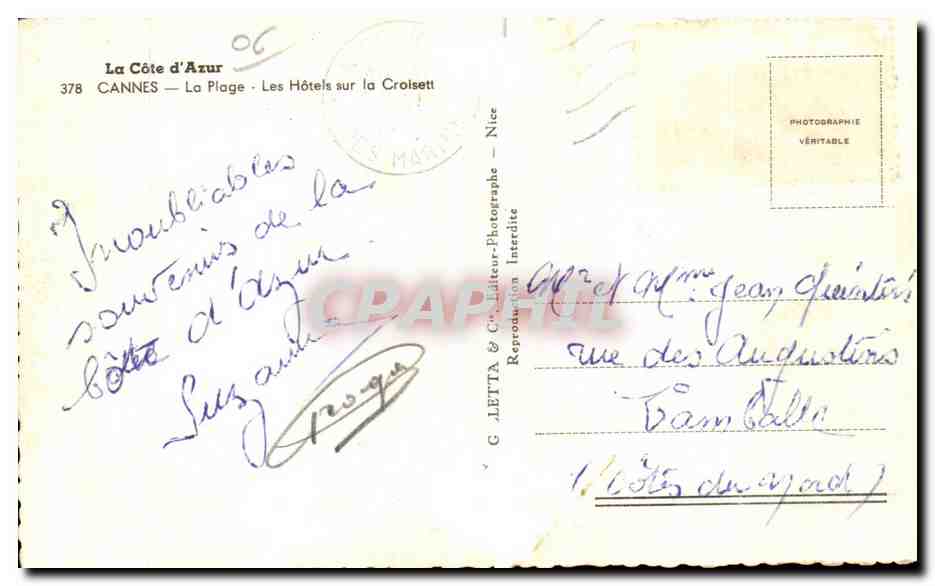 06
La Côte d'Azur
378 CANNES — La Plage - Les Hôtels sur la Croisett
ES MARIT
Inoubliables
souvenirs de la
Côte d'Azur
Suzanne
G LETTA & Cie, Éditeur-Photographe — Nice
Reproduction Interdite
PHOTOGRAPHIE
VÉRITABLE
Mr et Mme Jean Quintin
rue des Augustins
Lamballe
(Côtes du Nord)
CPAPHIL